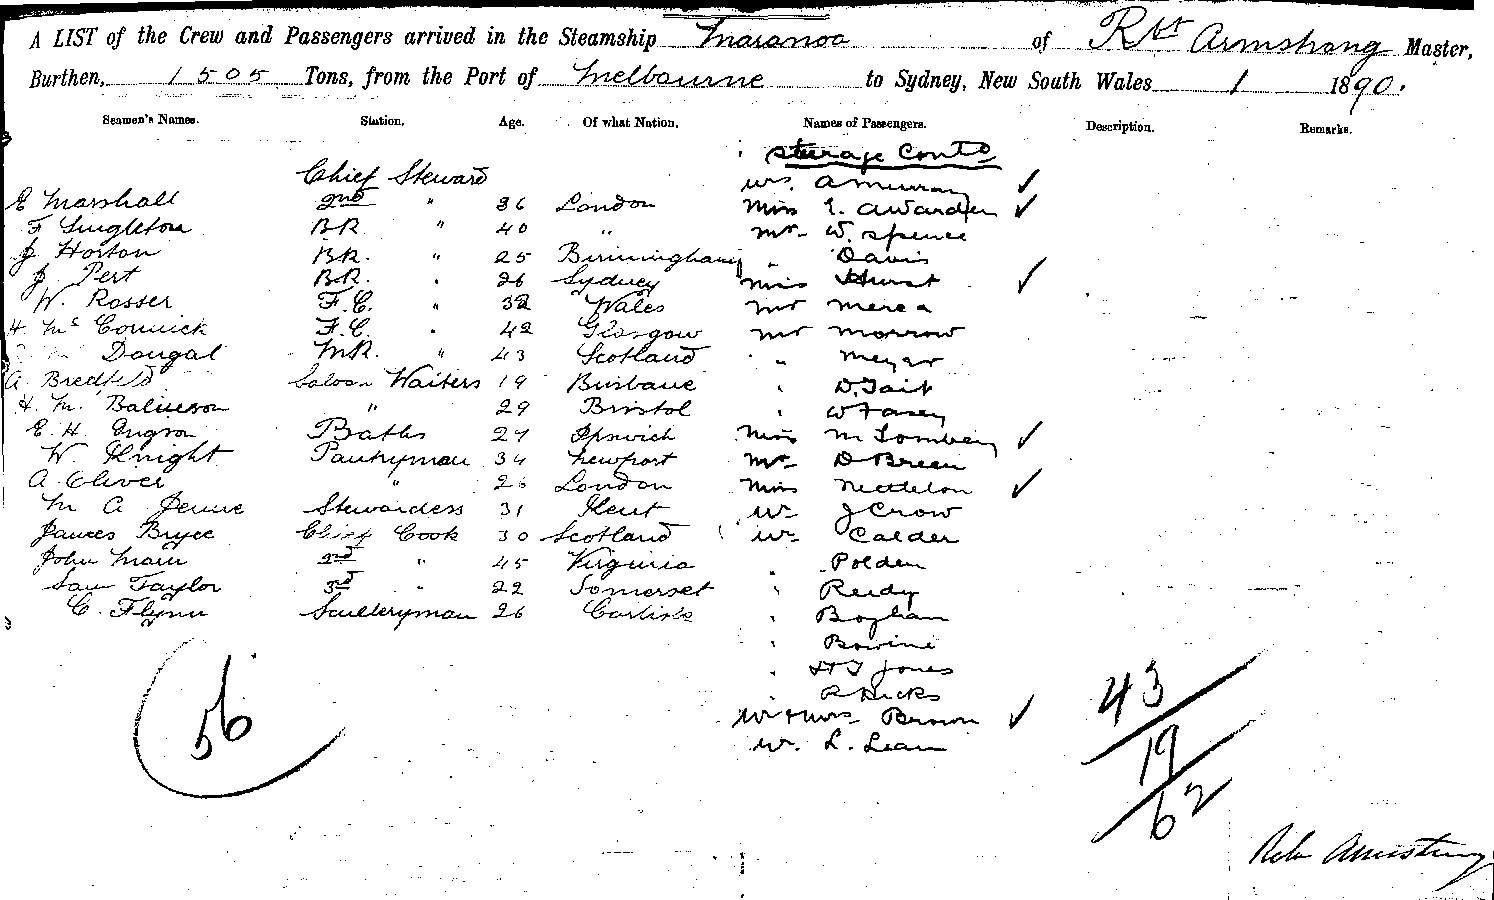 A LIST of the Crew and Passengers arrived in the Steamship Maranoa of Robt Armstrong Master,
Burthen, 1505 Tons, from the Port of Melbourne to Sydney, New South Wales 1 1890.
Seamen's Names. Station. Age. Of what Nation. Names of Passengers. Description. Remarks.
Steerage Contd
Chief Steward Mrs. A Murray ✓
E Marshall 2nd " 36 London Miss E. Awarden ✓
F Singleton B.R. " 40 " Mr W. Spence
J Horton B.R. " 25 Birmingham " Davis
J Pert B.R. " 26 Sydney Miss Hurst ✓
W. Rosser F.C. " 32 Wales Mr
H. McCormick F.C. " 42 Glasgow Mr Morrow
Dougal M.R. " 43 Scotland " Meyer
A Bredfeld Saloon Waiters 19 Brisbane " D. Tait
H. M. " 29 Bristol " W
E. H. Baths 27 Ipswich Miss M ✓
W Knight Pantryman 34 Newport Mr D Breen
A. Oliver " 26 London Miss Nettleton ✓
M A Stewardess 31 Kent Mr J Crow
James Bryce Chief Cook 30 Scotland Mr Calder
John Main 2nd " 45 Virginia " Polden
Sam Taylor 3rd " 22 Somerset " Reidy
C. Flynn Sculleryman 26 Carlisle " Boylan
" Bowine
" H J Jones
" R Hicks
Mr & Mrs Brown ✓
Mr. L. Lean
56
43
19
62
Rob Armstrong